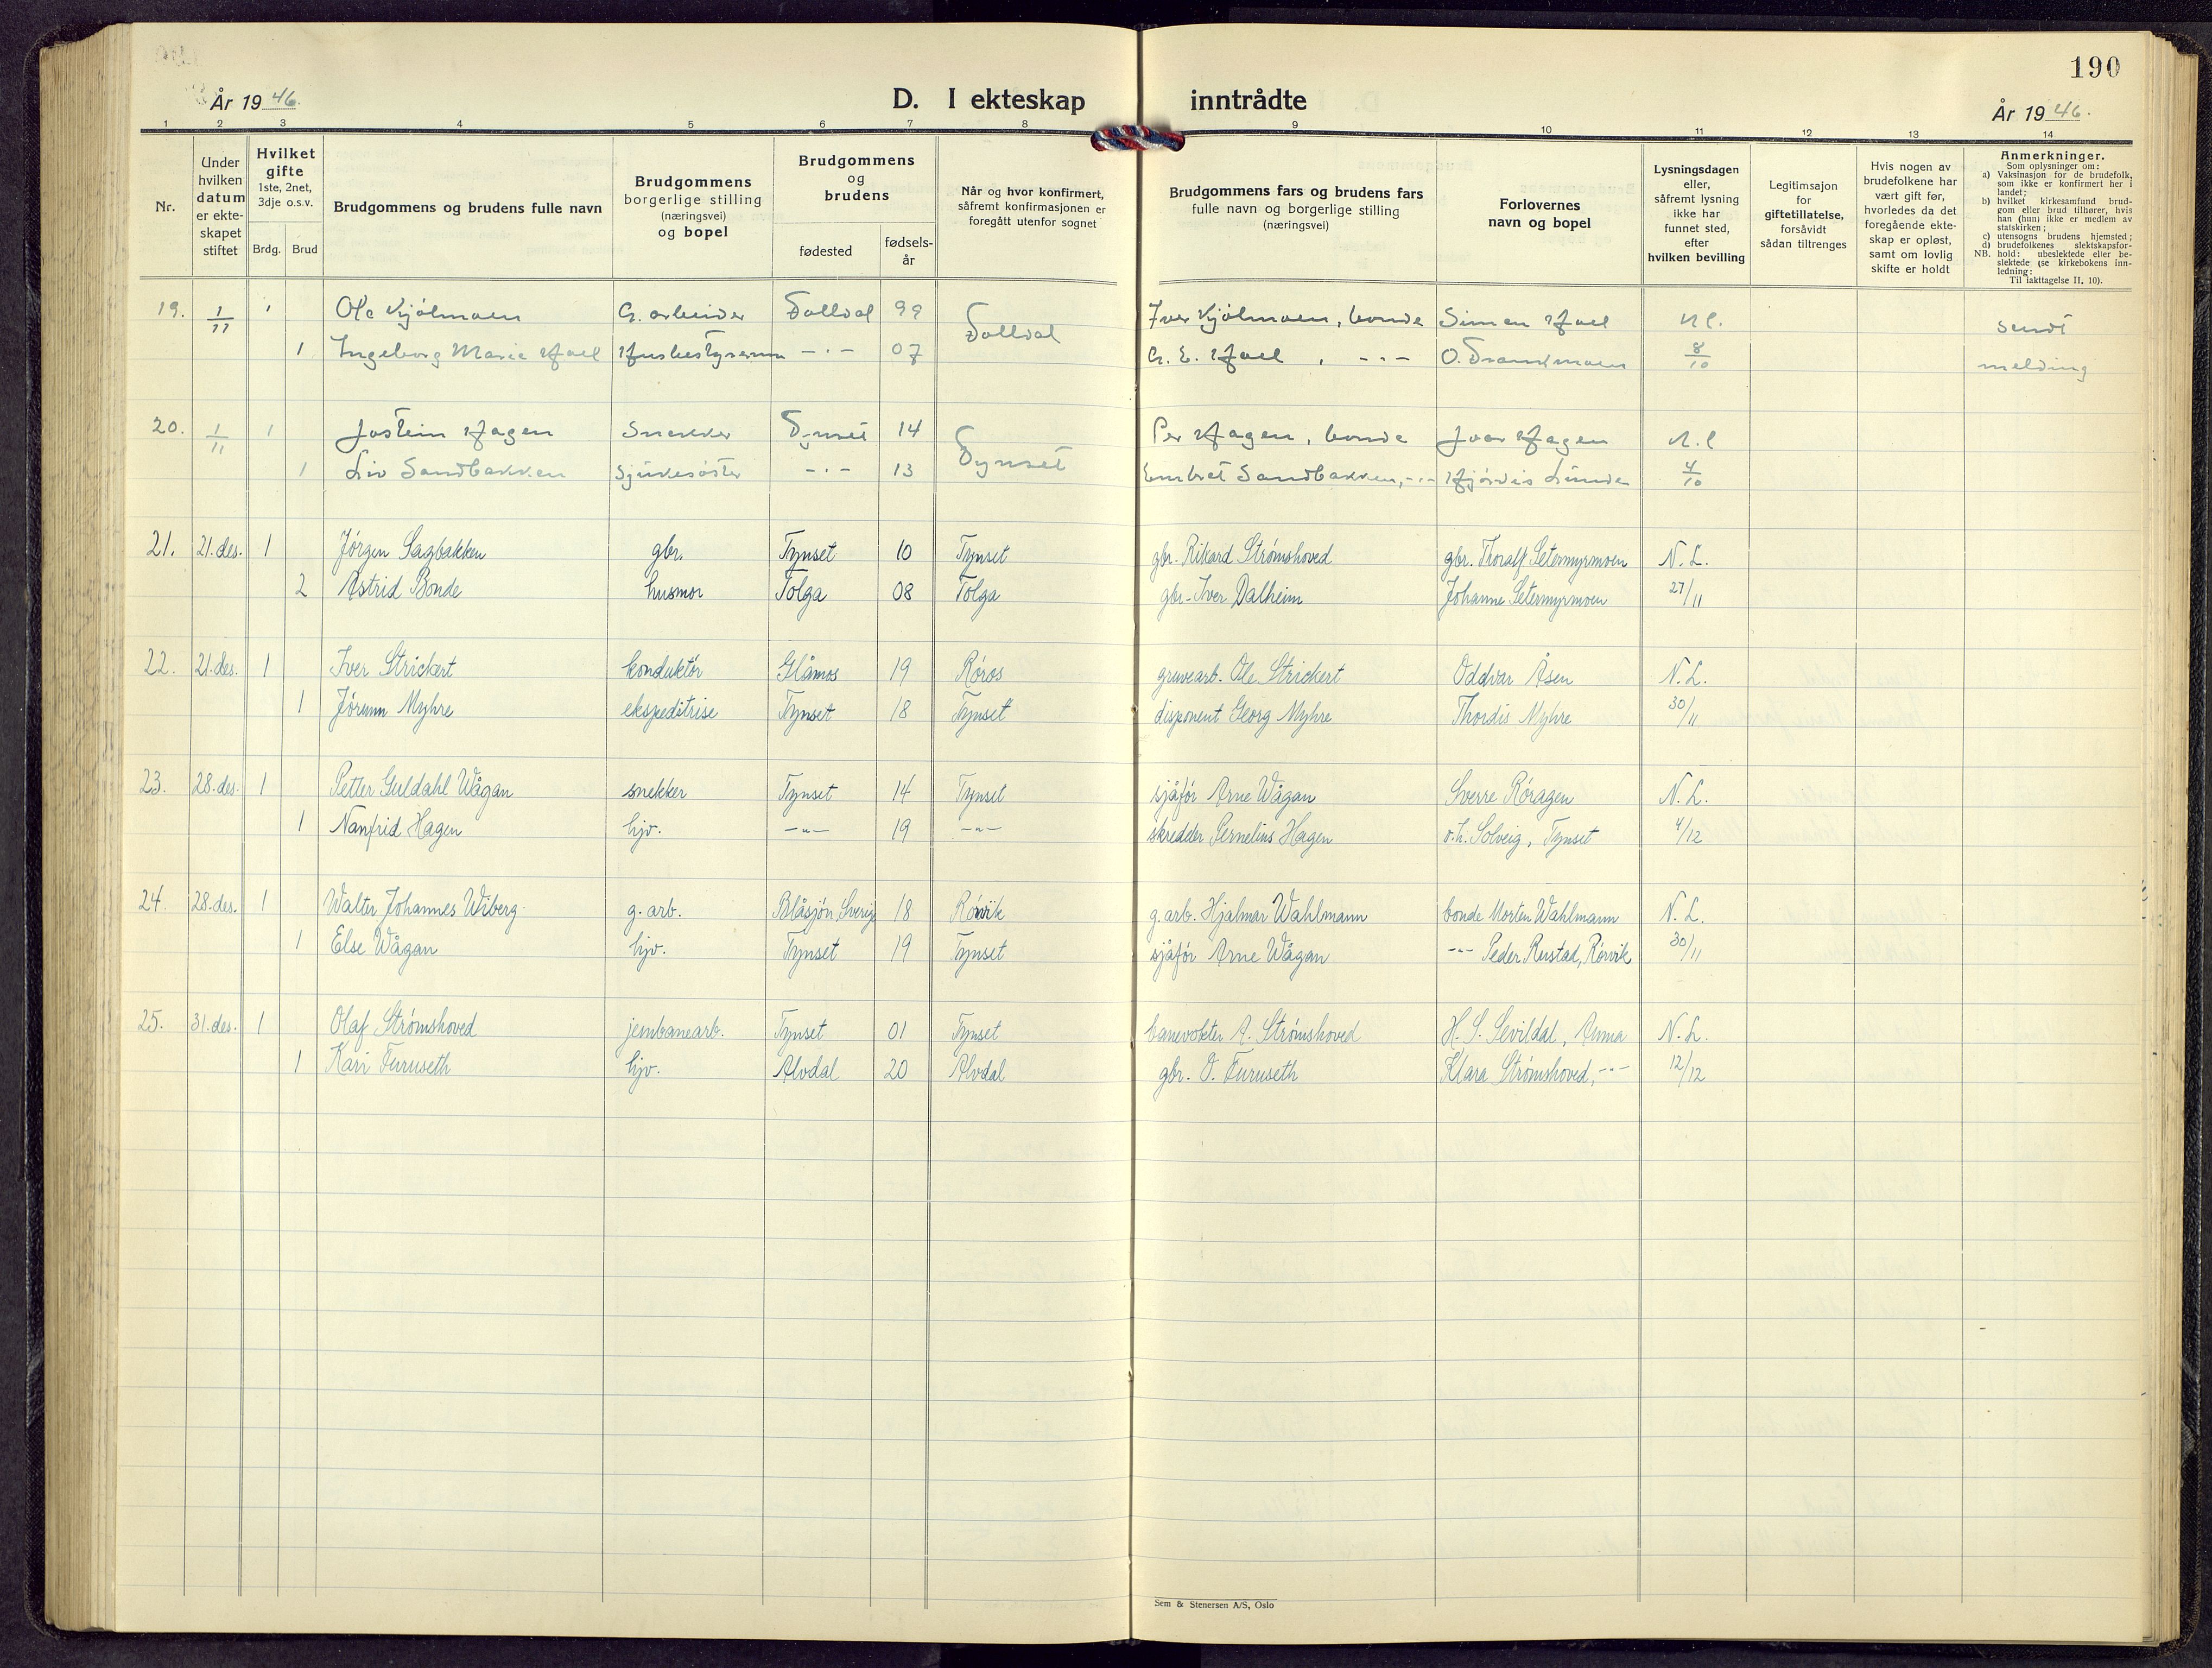 190
År 1946.
D. I ekteskap inntrådte
År 1946.
1 2 3 4 5 6 7 8 9 10 11 12 13 14
Nr.
Under hvilken datum er ekteskapet stiftet
Hvilket gifte
1ste, 2net, 3dje o.s.v.
Brdg. Brud
Brudgommens og brudens fulle navn
Brudgommens borgerlige stilling (næringsvei) og bopel
Brudgommens og brudens
fødested
fødselsår
Når og hvor konfirmert, såfremt konfirmasjonen er foregått utenfor sognet
Brudgommens fars og brudens fars fulle navn og borgerlige stilling (næringsvei)
Forlovernes navn og bopel
Lysningsdagen eller, såfremt lysning ikke har funnet sted, efter hvilken bevilling
Legitimsajon for giftetillatelse, forsåvidt sådan tiltrenges
Hvis nogen av brudefolkene har vært gift før, hvorledes da det foregående ekteskap er opløst, samt om lovlig skifte er holdt
Anmerkninger.
Som oplysninger om:
a) Vaksinasjon for de brudefolk, som ikke er konfirmert her i landet;
b) hvilket kirkesamfund brudgom eller brud tilhører, hvis han (hun) ikke er medlem av statskirken;
c) utensogns brudens hjemsted;
d) brudefolkenes slektskapsforhold: ubeslektede eller beslektede (se kirkebokens innledning:
NB. Til iakttagelse II, 10).
19. 1/11 1 Ole Kjølmoen G. arbeider Folldal 99 Folldal Iver Kjølmoen, bonde Simen Hoel N l. sendt
1 Ingeborg Marie Hoel Husbestyrerinn -"- 07 G. E. Hoel, -"- 8/10 melding
20. 1/11 1 Jostein Hagen Snekker Tynset 14 Tynset Per Hagen, bonde Ivar Hagen N.l
1 Liv Sandbakken Sjukesøster -"- 13 Embret Sandbakken, -"- Hjørdis Lunde 4/10
21. 21. des. 1 Jørgen Sagbakken gbr. Tynset 10 Tynset gbr. Rikard Strømshoved gbr. Thoralf Setermyrmoen N. L.
2 Astrid Bonde husmor Tolga 08 Tolga gbr. Iver Dalheim Johanne Setermyrmoen 27/11
22. 21. des. 1 Iver Strickert konduktør Glåmos 19 Røros gruvearb. Ole Strickert Oddvar Åsen N. L.
1 Jørunn Myhre ekspeditrise Tynset 18 Tynset disponent Georg Myhre Thordis Myhre 30/11
23. 28. des. 1 Petter Guldahl Wågan snekker Tynset 14 Tynset sjåfør Arne Wågan Sverre Røragen N. L.
1 Nanfrid Hagen hjv. -"- 19 -"- skredder Pernelius Hagen o.h. Solveig, Tynset 4/12
24. 28. des. 1 Walter Johannes Wiberg g. arb. Blåsjön, Sverig 18 Rørvik g. arb. Hjalmar Wahlmann bonde Morten Wahlmann N. L.
1 Else Wågan hjv. Tynset 19 Tynset sjåfør Arne Wågan -"- Peder Rustad, Rørvik 30/11
25. 31. des. 1 Olaf Strømshoved jernbanearb. Tynset 01 Tynset banevokter A. Strømshoved H. S. Sevildal, Auma N. L.
1 Kari Furuseth hjv. Alvdal 20 Alvdal gbr. O. Furuseth Klara Strømshoved, -"- 12/12
Sem & Stenersen A/S, Oslo